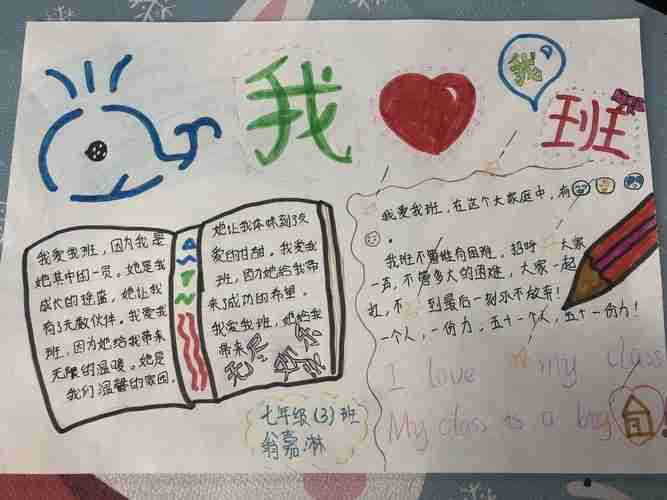 我
我
班
我爱我班,因为我是
她其中的一员。她是我
成长的摇篮,她让我
有3无数伙伴。我爱我
班,因为她给我带来
无限的温暖。她是
我们温馨的家园。
她让我体味到3友
爱的甘甜。我爱我
班,因为她给我带
来了成功的希望。
我爱我班,她给我
带来无尽
欢乐
我爱我班,在这个大家庭中,有
。
我班不管谁有困难,招呼一
大家
一声,不管多大的困难,大家一起
扛,不
到最后一刻永不放弃!
一个人,一份力,五十一个人,五十一份力!
I love my class
My class is a big
七年级(3)班
翁嘉淋